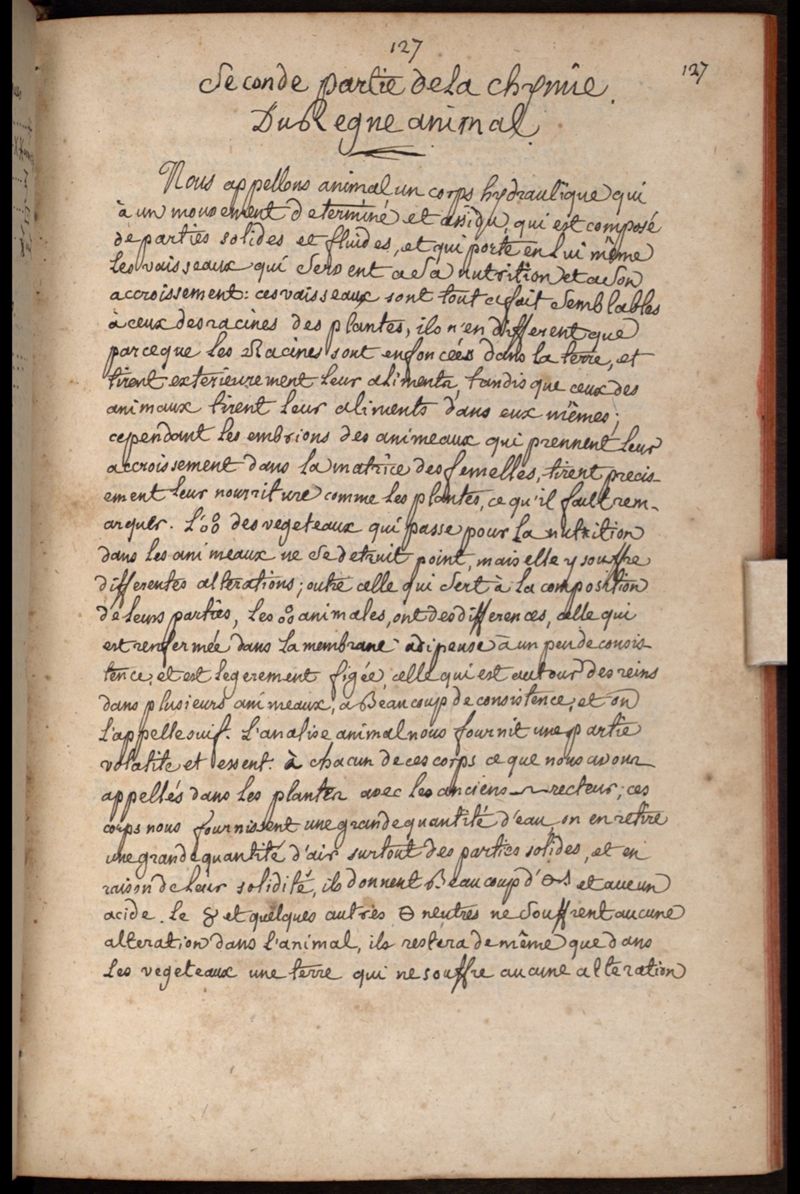 127
127
Seconde partie de la chymie.
Du Regne animal.
Nous appellons animal un corps hydraulique qui
à un mouvement determiné et assidu, qui est composé
de parties solides et fluides, et qui porte en lui même
les vaisseaux qui servent a sa nutrition et a son
accroissement: ces vaisseaux sont tout a fait semblables
à ceux des racines des plantes, ils n'en different que
parceque les Racines sont enfoncées dans la terre, et
tirent exterieurement leur aliments, tandis que ceux des
animaux tirent leur aliments dans eux mêmes;
cependant les embrions des animeaux qui prennent leur
accroissement dans la matrice des femelles, tirent precis-
ement leur nourriture comme les plantes, ce qu'il faut rem-
arquer. L'o°o des vegeteaux qui passe pour la nutrition
dans les animeaux ne se detruit point, mais elle y souffre
differentes alterations; outre celle qui sert à la composition
de leurs parties, les o°o animales, ont des differences, celle qui
est renfermée dans la membrane adipeuse à un peu de consis-
tence, et est legerement figée, celle qui est autour des reins
dans plusieurs animeaux, a Beaucoup de consistence, et on
l'appelle suif. L'analise animal nous fournit une partie
volatile et essent. à chacun de ces corps ce que nous avons
appellés dans les plantes avec les anciens recteur; ces
corps nous fournissent une grande quantité d'eau on en retire
une grande quantité d'air surtout des parties solides, et en
raison de leur solidité, ils donnent Beaucoup d' et avec un
acide. Le et quelques autres 🜔 neutres ne souffrent aucune
alteration dans l'animal, ils restera de même que dans
les vegeteaux une terre qui ne souffre aucune alteration